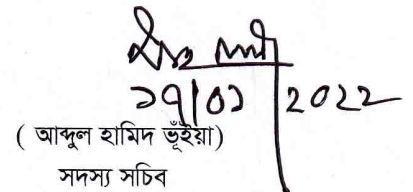 ১৭/০১/2022
( আব্দুল হামিদ ভূঁইয়া)
সদস্য সচিব